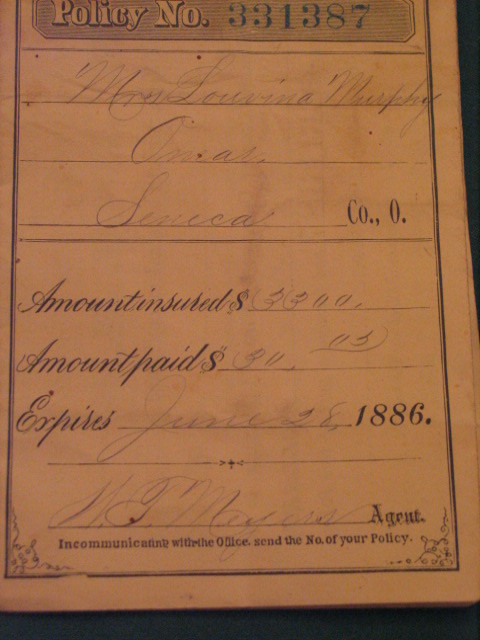 Policy No. 331387
Mrs Louvina Murphy
Omar
Seneca Co., O.
Amount insured $ 3300.
Amount paid $ 30.
Expires June 28, 1886.
W. T. Meyers Agent.
In communicating with the Office, send the No. of your Policy.